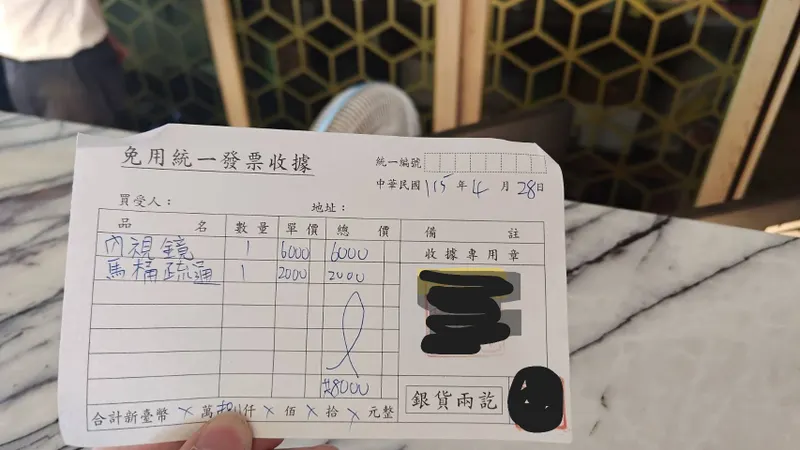 免用統一發票收據
統一編號
中華民國 115 年 4 月 28 日
買受人： 地址：
品名 數量 單價 總價 備註
內視鏡 1 6000 6000 收據專用章
馬桶疏通 1 2000 2000
#8000
銀貨兩訖
合計新臺幣 × 萬 仟 × 佰 × 拾 × 元整